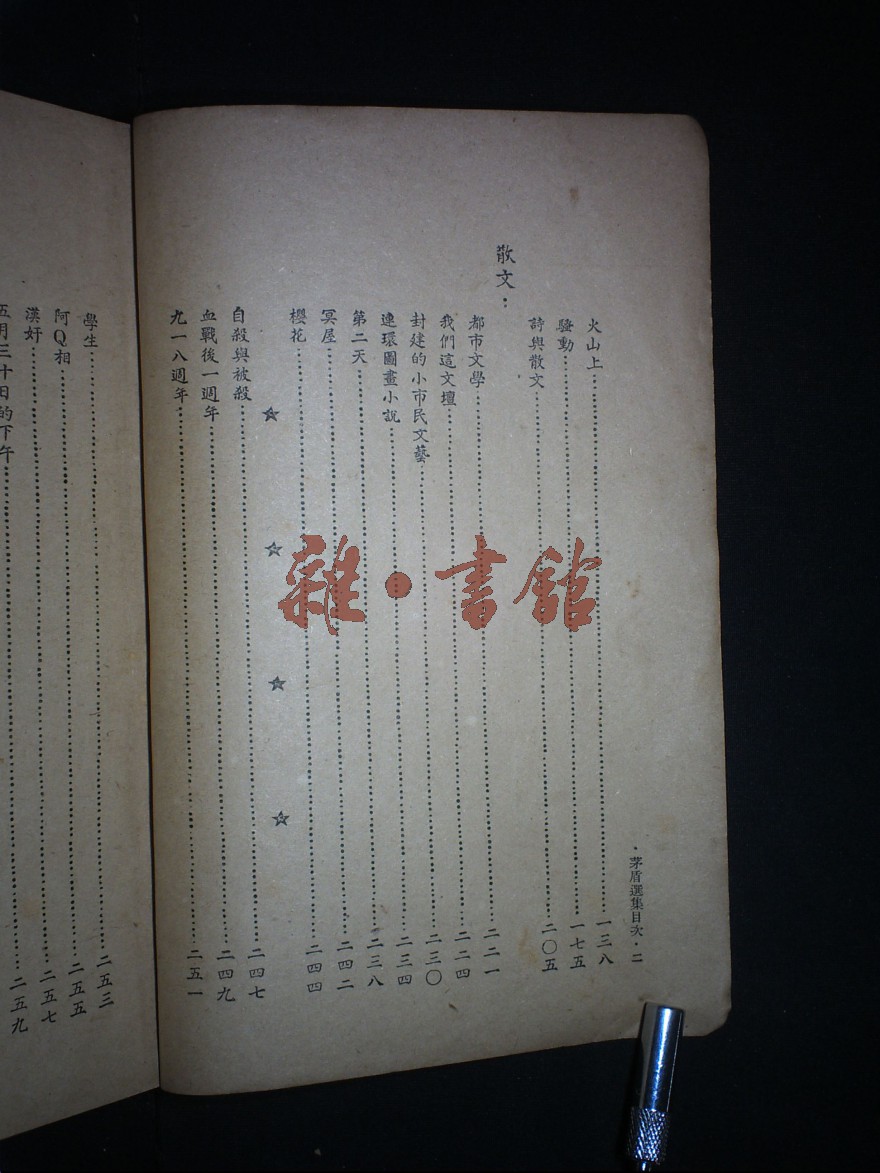 ·茅盾選集目次·二
火山上……一三八
騷動……一七五
詩與散文……二〇五
散文·
都市文學……二二一
我們這文壇……二二四
封建的小市民文藝……二三〇
連環圖畫小說……二三四
第二天……二三八
冥屋……二四二
櫻花……二四四
☆ ☆ ☆ ☆
自殺與被殺……二四七
血戰後一週年……二四九
九一八週年……二五一
學生……二五三
阿Q相……二五五
漢奸……二五七
五月三十日的下午……二五九
雜·書館